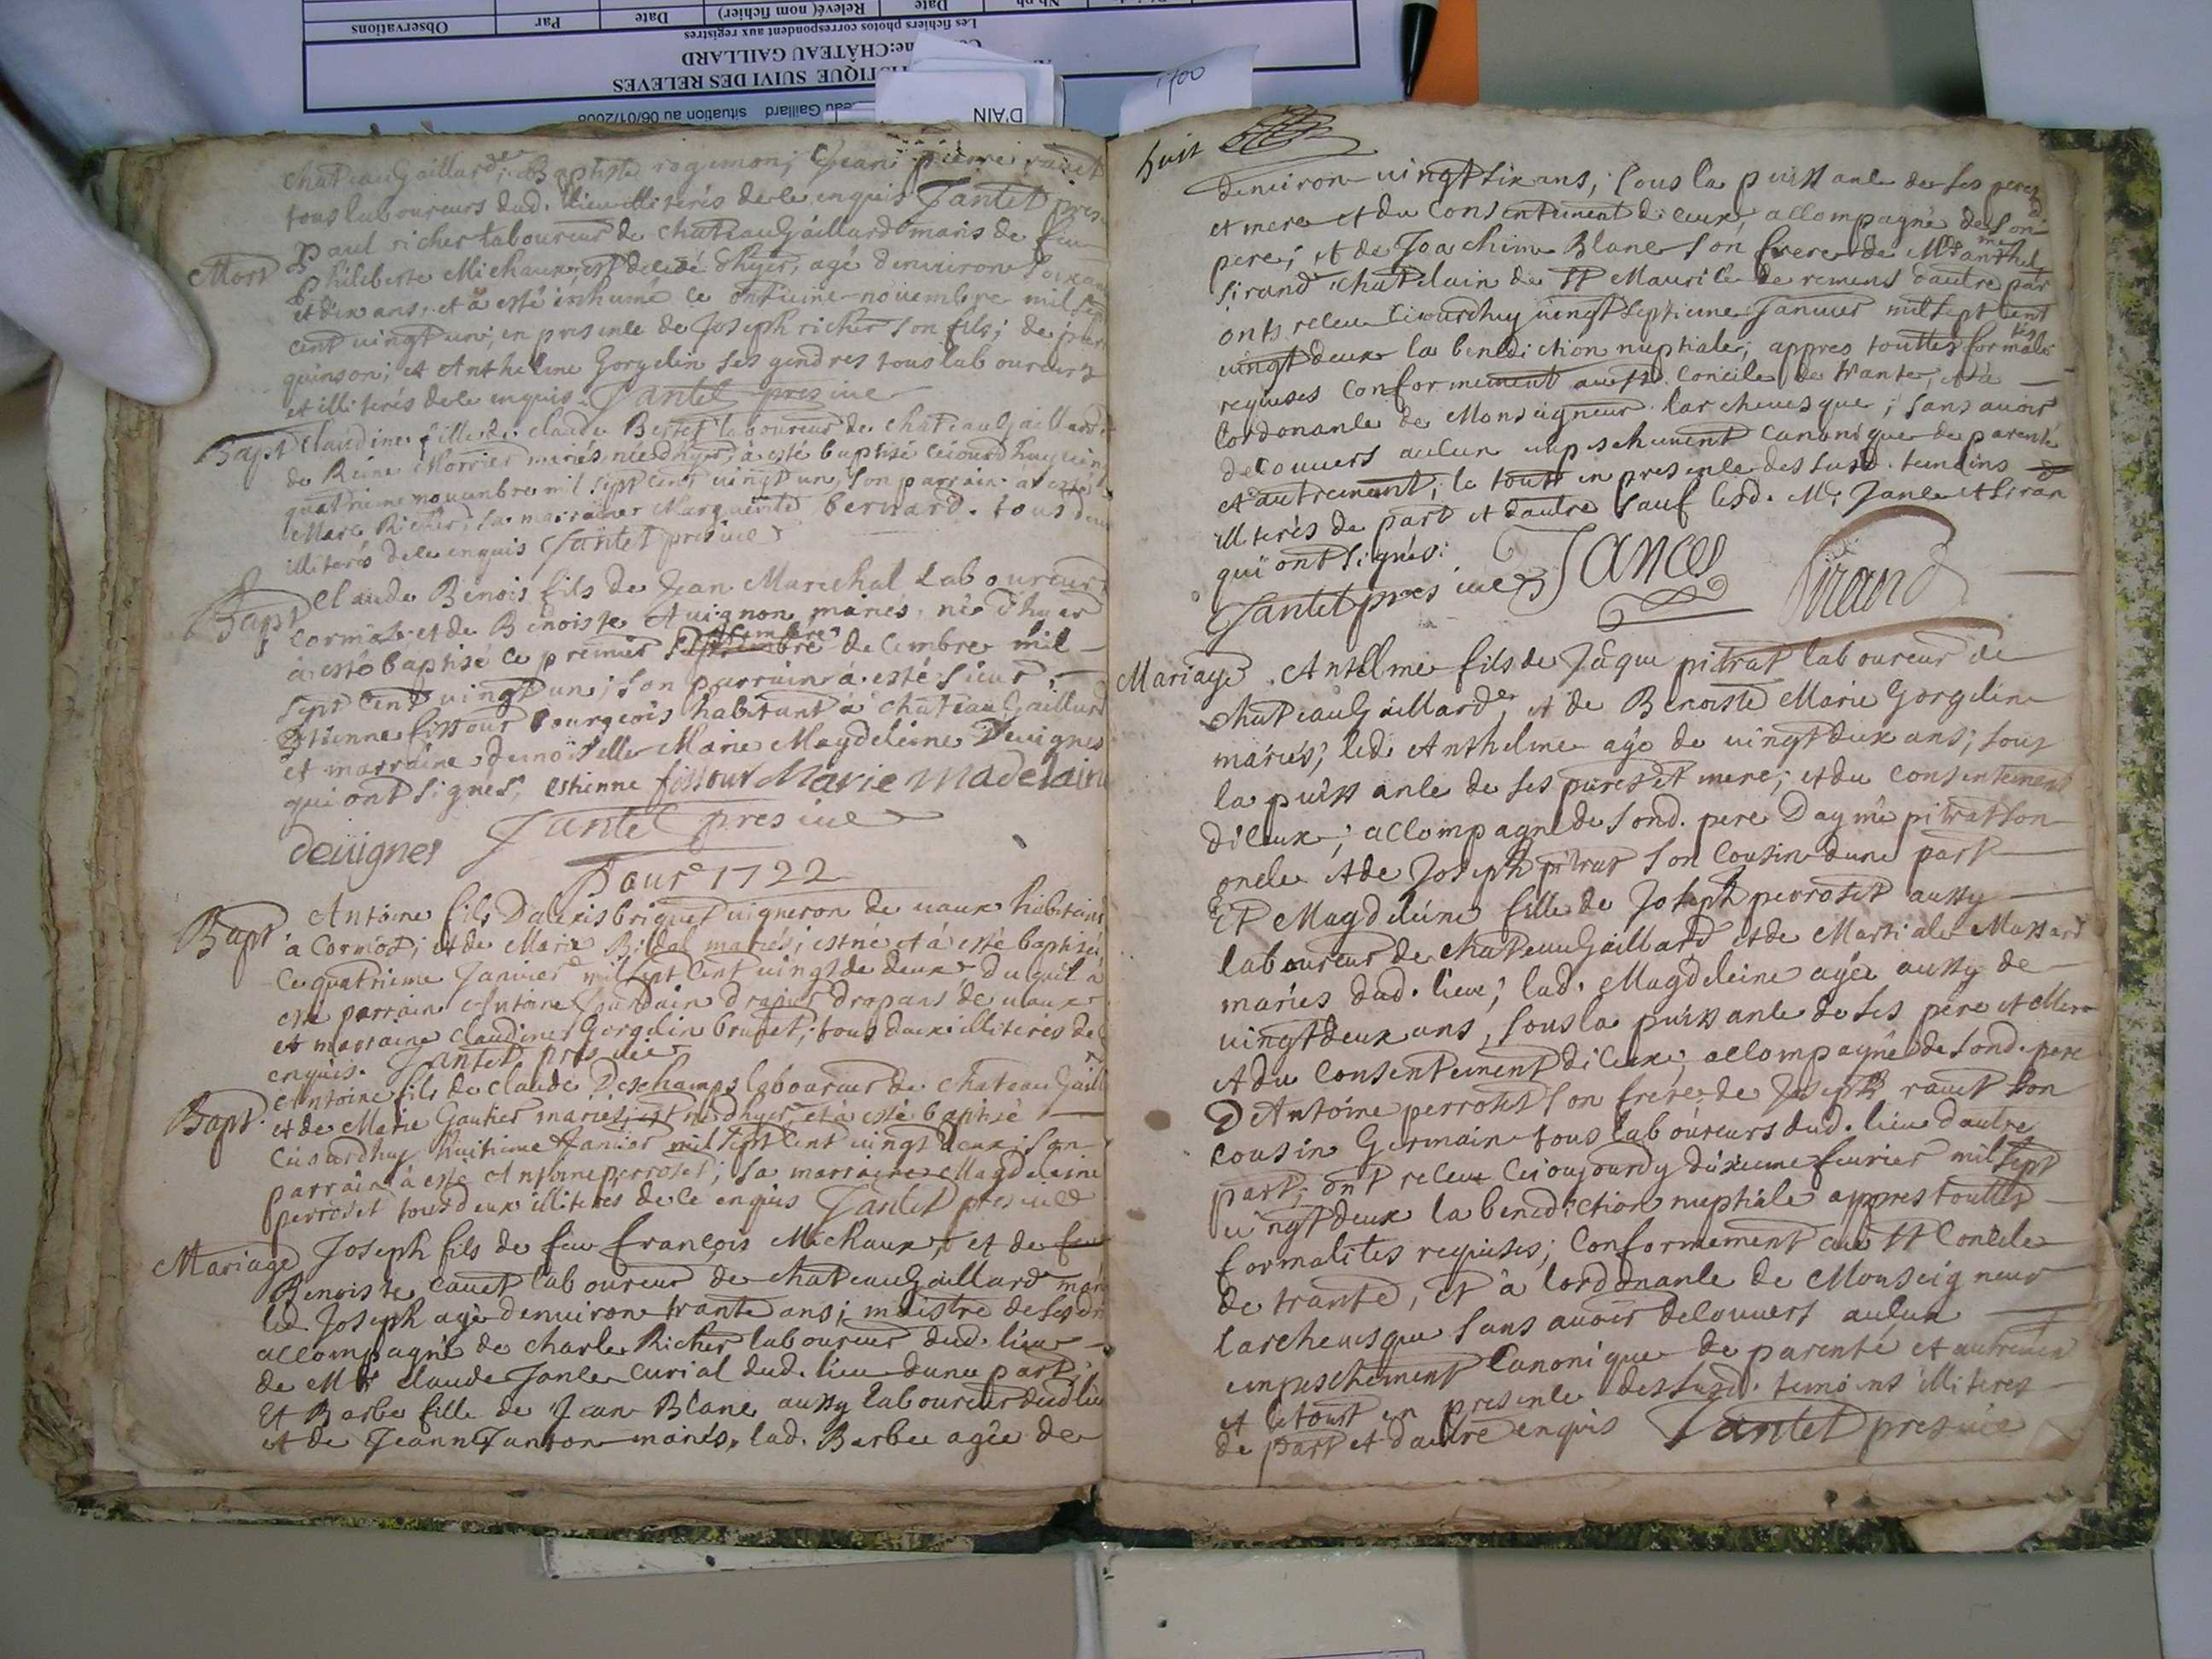 Observations
Par
Date
Relevé( nom fichier)
Date
Les fichiers photos correspondent aux registres
CHÂTEAU GAILLARD
SUIVI DES RELEVES
Gaillard situation au 06/01/200
D'AIN
1700
chateauGaillard, Baptiste rogemon; Jean pierre
tous laboureurs dud. lieu illiterés de ce enquis Jantet pres
Mort
Paul richer laboureur de chateauGaillard maris de feu
Philiberte Michaux, est decedé d'hyer, agé denuiron soixan
et dix ans, et a esté inhumé ce onzieme nouembre mil sep
cent uingt un, en presence de Joseph richer son fils; de
quinson; et Anthelme Gorgelin ses gendres tous laboureurs
et illiterés de ce enquis. Jantet pres uic
Bapt
Claudine fille de claude Bertet laboureur de chateauGaillard
de Reine Morrier mariés, née d'hyer, a esté baptisé ceiourdhuy uin
quatrieme nouembre mil sept cent uingt un, son parrain a esté
Marc Richer, sa marraine Marguerite bernard. tous deux
illiterés de ce enquis Jantet pres uic
Bapt
Claude Benois fils de Jean Marechal Laboureur
Cormoz et de Benoiste Auignon mariés, né d'hyer
à esté baptisé ce premier decembre mil
sept cent uingt un; son parrain à esté sieur
Estienne fissour bourgeois habitant à chateauGaillard
et marraine demoiselle Marie Magdeleine Deuignes
qui ont signés, estienne fissour Marie Madelaine
deuignes Jantet pres uic
Pour 1722
Bapt.
Antoine fils D'alexis briquet uigneron de uaux habitant
a Cormoz; et de Marie Bildal mariés; est né et à esté baptisé
ce quatrieme Januier mil sept cent uingt de deux, duquel a
esté parrain Antoine Jourdain drapier drapans de uaux
et marraine claudine Gorgelin brunet; tous deux illiterés de
enquis. Jantet pres uic
Bapt.
Antoine fils de claude Deschamps laboureur de chateauGaill
et de Marie Gautier mariés, est né d'hyer, et à esté baptisé
ceiourdhuy huitieme Januier mil sept cent uingt deux; son
parrain à esté Antoine perroset; sa marraine Magdeleine
perroset tous deux illiterés de ce enquis Jantet pres uic
Mariage
Joseph fils de feu françois Michaux, et de feu
Benoiste Cauet laboureur de chateauGaillard mari
led. Joseph agé denuiron trante ans; maistre de ses dr
accompagné de charle Richer laboureur dud. lieu
de Mre claude Jance curial dud. lieu dune part,
Et Barbe fille de Jean Blanc aussy laboureur dud lieu
et de Jeanne Janton mariés, lad. Barbe agée de
huit
denuiron uingt six ans, sous la puissance de ses peres
et mere et du consentement diceux, accompagné de son
pere; et de Joachim Blanc son frere de Mre anthel
me
sirand chatelain de St Maurice de remens dautre par
ont receu ceiourdhuy uingt septieme Januier mil sept cent
uingt deux la benediction nuptiale; appres touttes formali
tés
requises conformement au St. Concile de trante, et à
lordonance de Monseigneur larcheuesque; sans auoir
decouuers aucun empeschement canonique de parenté
et autrement; le tout en presence des susd. temoins
illiterés de part et dautre sauf lesd. Mr. Jance et siran
qui ont signés:
Jantet pres uic Jance Sirand
Mariage.
Antelme fils de Jâque pitrat laboureur de
chateauGaillard, et de Benoiste Marie Gorgelin
mariés; led. Anthelme agé de uingt deux ans; sous
la puissance de ses peres et mere; et du consentement
diceux; accompagné de sond. pere Daymé pitrat son
oncle et de Joseph pitrat son cousin dune part
Et Magdeleine fille de Joseph perroset aussy
laboureur de chateauGaillard et de Martiale Massard
mariés dud. lieu; lad. Magdeleine agée aussy de
uingt deux ans, sous la puissance de ses pere et Mere
et du consentement diceux; accompagné de sond. pere
D'Antoine perroset son frere, de Joseph rauet son
cousin Germain tous laboureurs dud. lieu dautre
part; ont receu ceioujourdy dixieme feurier mil sept
uingt deux la benediction nuptiale appres touttes
formalités requises; Conformement au St Concile
de trante, et à lordonance de Monseigneur
larcheuesque sans auoir decouuert aucun
empeschement Canonique de parenté et autremen
et le tout en presence des susd. temoins illiteres
de part et dautre enquis Jantet pres uic